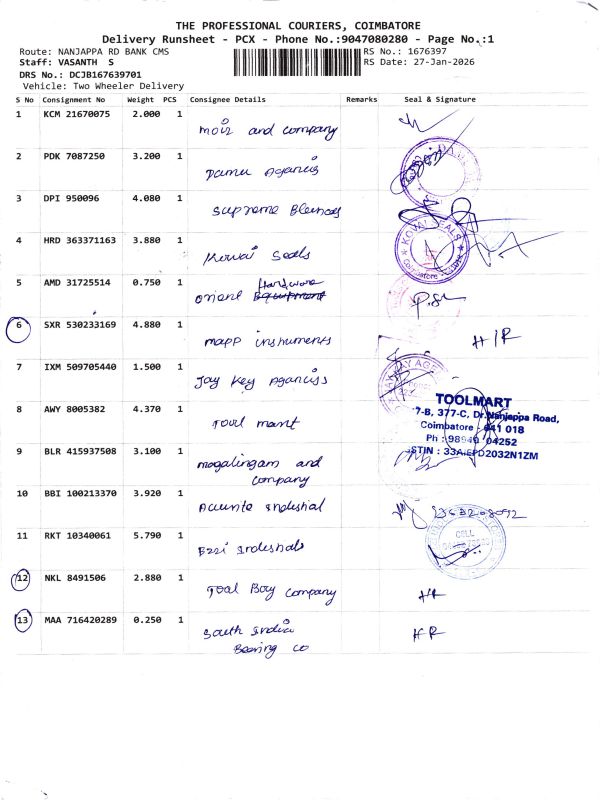 THE PROFESSIONAL COURIERS, COIMBATORE
Delivery Runsheet - PCX - Phone No.:9047080280 - Page No.:1
Route: NANJAPPA RD BANK CMS
RS No.: 1676397
Staff: VASANTH S
RS Date: 27-Jan-2026
DRS No.: DCJB167639701
Vehicle: Two Wheeler Delivery
S No Consignment No Weight PCS Consignee Details Remarks Seal & Signature
1 KCM 21670075 2.000 1 moiz and company
2 PDK 7087250 3.200 1 Damu Agancis
3 DPI 950096 4.080 1 Supreme Blends
4 HRD 363371163 3.880 1 Kowai Seals
KOWAI SEALS
Coimbatore
5 AMD 31725514 0.750 1 orient Hardware
6 SXR 530233169 4.880 1 mapp instruments H/R
7 IXM 509705440 1.500 1 Jay Key Aganciss
8 AWY 8005382 4.370 1 Tool mart
TOOLMART
7-B, 377-C, Dr.Nanjappa Road,
Coimbatore - 641 018
Ph : 98940 04252
GSTIN : 33AIEFD2032N1ZM
9 BLR 415937508 3.100 1 mogalingam and
company
10 BBI 100213370 3.920 1 Accurite Industrial
11 RKT 10340061 5.790 1 Ezzi Industrials
CELL
12 NKL 8491506 2.880 1 Tool Boy company HR
13 MAA 716420289 0.250 1 South India HR
Bearing co